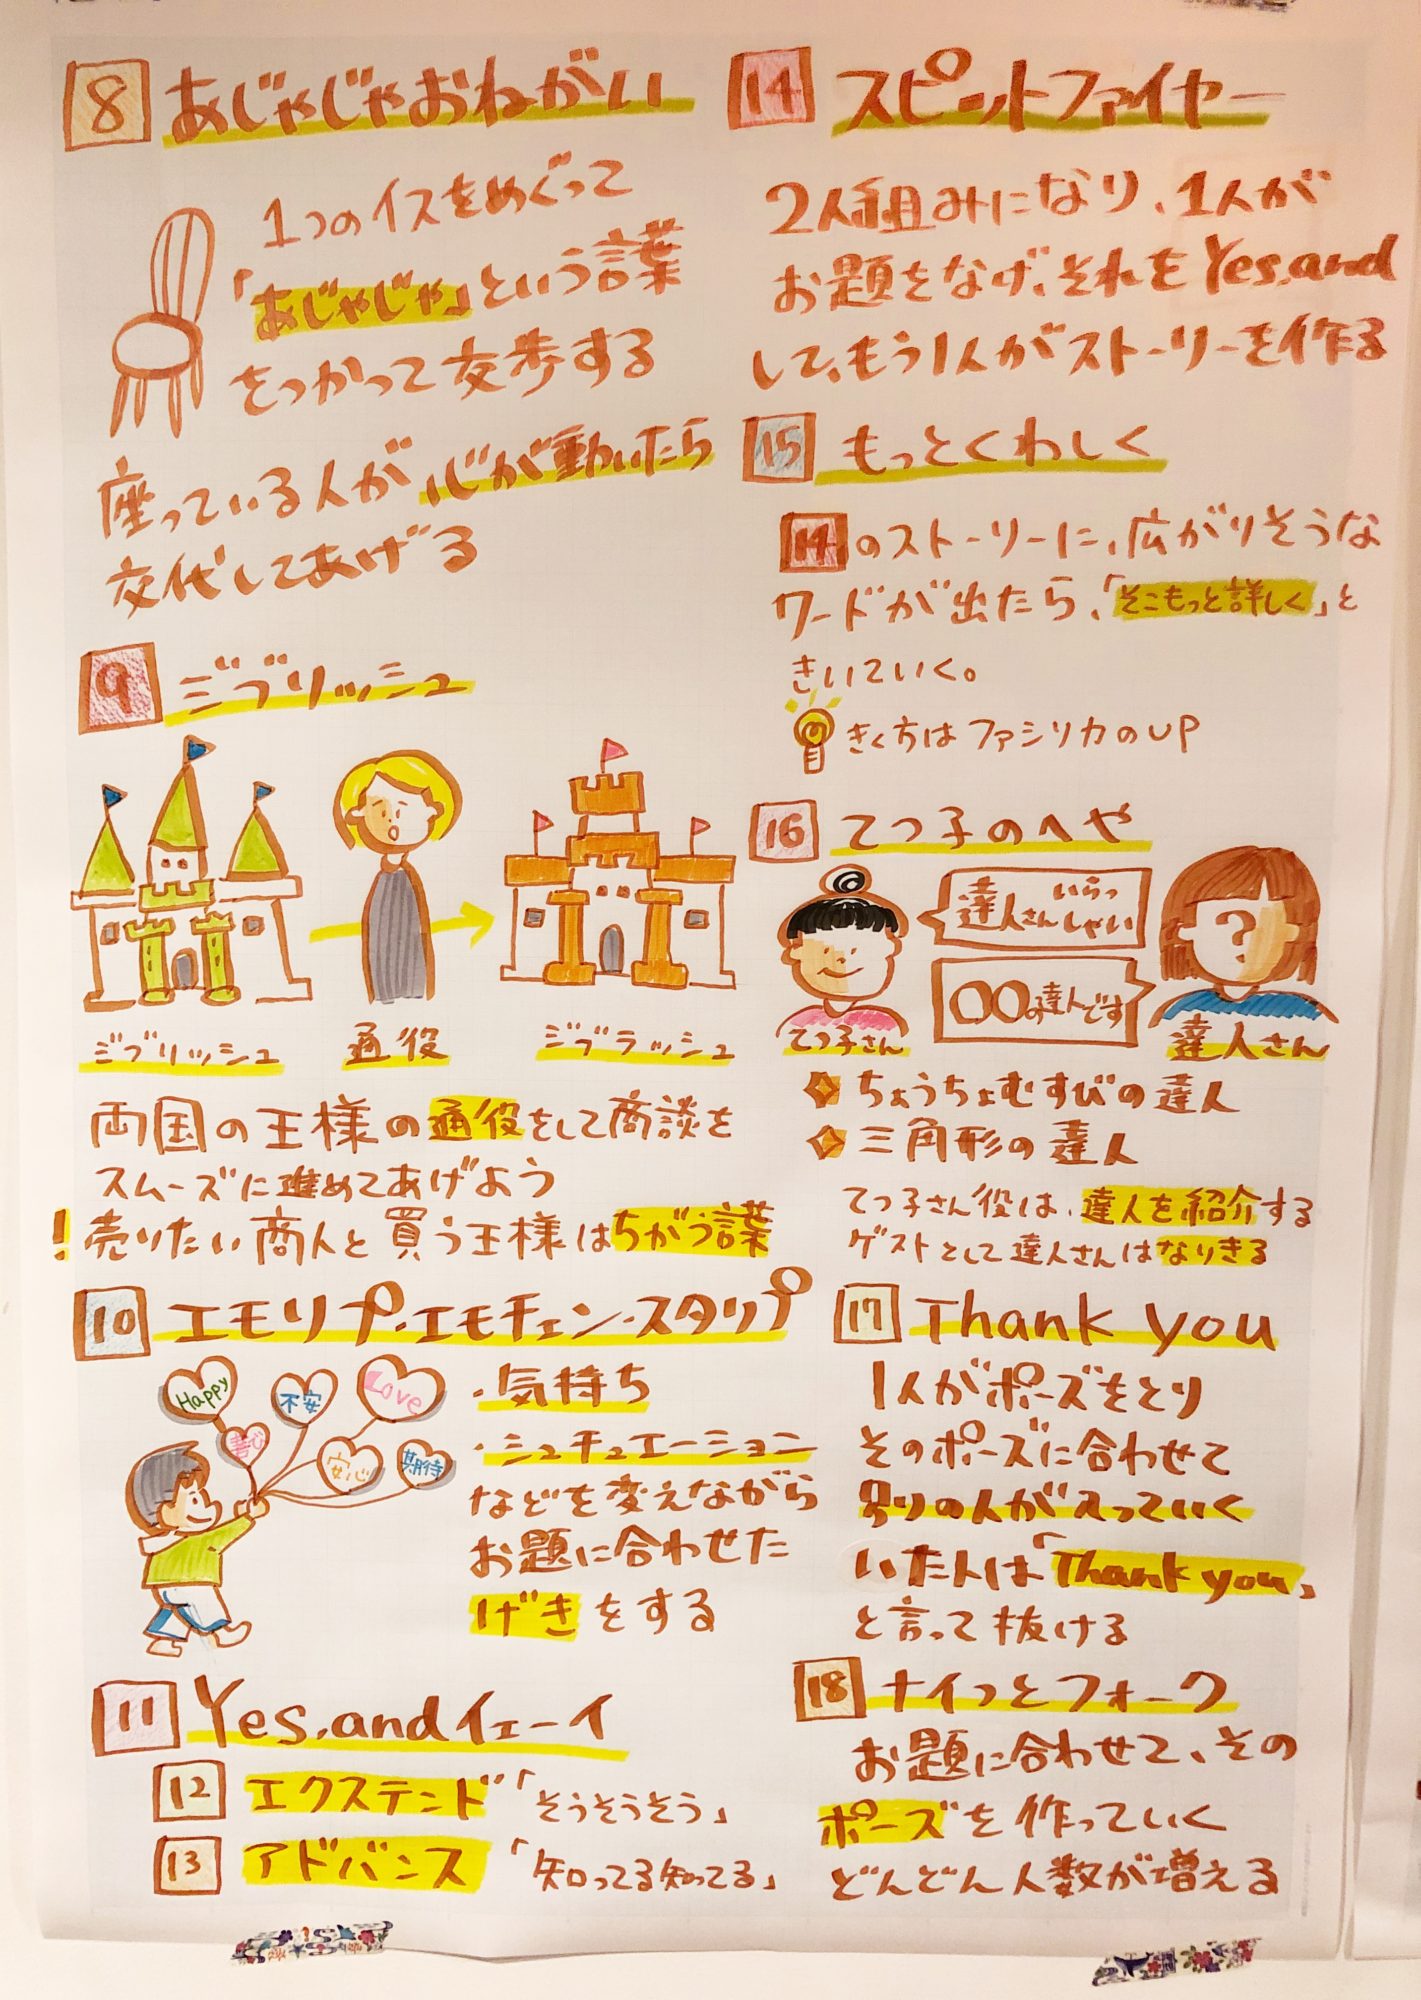 8 あじゃじゃおねがい
1つのイスをめぐって
「あじゃじゃ」という言葉
をつかって交歩する
座っている人が心が動いたら
交代してあげる
9 ジブリッシュ
ジブリッシュ
通役
ジブラッシュ
両国の王様の通役をして商談を
スムーズに進めてあげよう
! 売りたい商人と買う王様はちがう言葉
10 エモリプ・エモチェン・スタリプ
Happy
不安
Love
喜び
安心
期待
・気持ち
・シュチュエーション
などを変えながら
お題に合わせた
げきをする
11 Yes,andイェーイ
12 エクステンド「そうそうそう」
13 アドバンス「知ってる知ってる」
14 スピットファイヤー
2人組みになり、1人が
お題をなげ、それをYes,and
して、もう1人がストーリーを作る
15 もっとくわしく
14のストーリーに、広がりそうな
ワードが出たら、「そこもっと詳しく」と
きいていく。
きく方はファシリカのUP
16 てつ子のへや
達人さんいらっしゃい
〇〇の達人です
?
てつ子さん
達人さん
ちょうちょむすびの達人
三角形の達人
てつ子さん役は、達人を紹介する
ゲストとして達人さんはなりきる
17 Thank you
1人がポーズをとり
そのポーズに合わせて
別の人が入っていく
いた人は「Thank you」
と言って抜ける
18 ナイフとフォーク
お題に合わせて、その
ポーズを作っていく
どんどん人数が増える